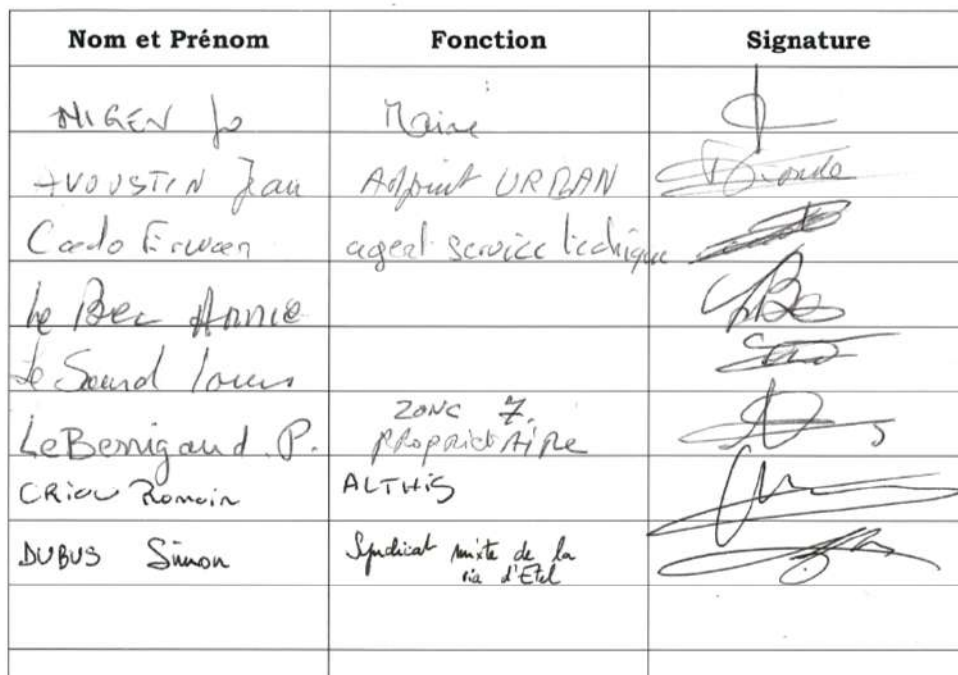 Nom et Prénom Fonction Signature
NIGEN Jo Maire
AVOUSTIN Jean Adjoint URBAN
Cado Erwan agent service technique
Le Bec Annie
Le Sourd Louis
Le Berrigaud. P. ZONE 7.
PROPRIETAIRE
CRIOU Romain ALTHIS
DUBUS Simon Syndicat mixte de la
ria d'Etel